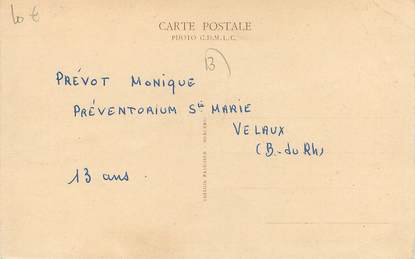 10 €
CARTE POSTALE
PHOTO C.D.M.L.C.
13
PRÉVOT MONIQUE
PRÉVENTORIUM Ste MARIE
VELAUX
(B.-du Rh)
13 ans.